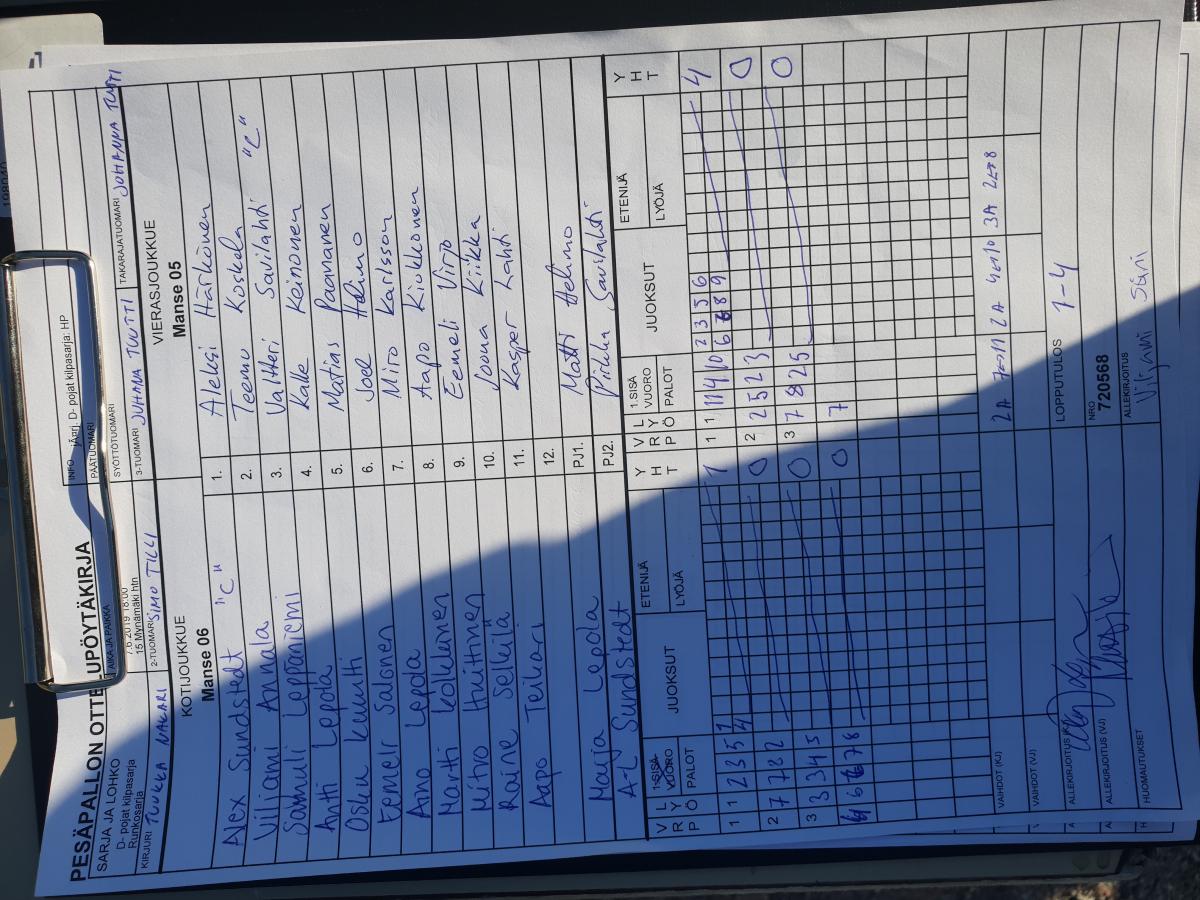 PESÄPALLON OTTELUPÖYTÄKIRJA
SARJA JA LOHKO
D- pojat kilpasarja
Runkosarja
AIKA JA PAIKKA
7.6.2019 18:00
15 Mynämäki htn
INFO
iÄprj. D- pojat kilpasarja: HP
PÄÄTUOMARI
SYÖTTÖTUOMARI
KIRJURI TUUKKA NAKARI
2-TUOMARI SIMO TILLI
3-TUOMARI JUHANA TUUTTI
TAKARAJATUOMARI JOHANNA TUUTTI
KOTIJOUKKUE VIERASJOUKKUE
Manse 06 Manse 05
Alex Sundstedt "C" 1. Aleksi Härkönen
Viljami Annala 2. Teemu Koskela
Samuli Leppäniemi 3. Valtteri Savilahti "C"
Antti Lepola 4. Kalle Keinonen
Osku Kuutti 5. Matias Paananen
Eemeli Salonen 6. Joel Helimo
Arno Lepola 7. Miro Karlsson
Martti Kokkinen 8. Aapo Kiukkonen
Mitro Huittinen 9. Eemeli Virjo
Raine Selkilä 10. Joona Kiikka
Aapo Teikari 11. Kasper Lahti
12.
Marja Lepola PJ1. Matti Helimo
A-L Sundstedt PJ2. Pirkka Savilahti
V R P L Y Ö 1:SISÄ VUORO PALOT JUOKSUT ETENIJÄ LYÖJÄ Y H T V R P L Y Ö 1:SISÄ VUORO PALOT JUOKSUT ETENIJÄ LYÖJÄ Y H T
1 1 2 3 5 1 1 1 11 4 10 2 3 5 6 4
4 6 7 8 9
2 7 7 8 2 0 2 2 5 2 3 0
3 3 3 4 5 0 3 7 8 2 5 0
4 6 6 7 8 0 7
VAIHDOT (KJ) 2A 7→11 2A 4→10 3A 2→8
VAIHDOT (VJ)
ALLEKIRJOITUS (KJ) LOPPUTULOS 1-4
ALLEKIRJOITUS (VJ) NRO 720568
HUOMAUTUKSET ALLEKIRJOITUS